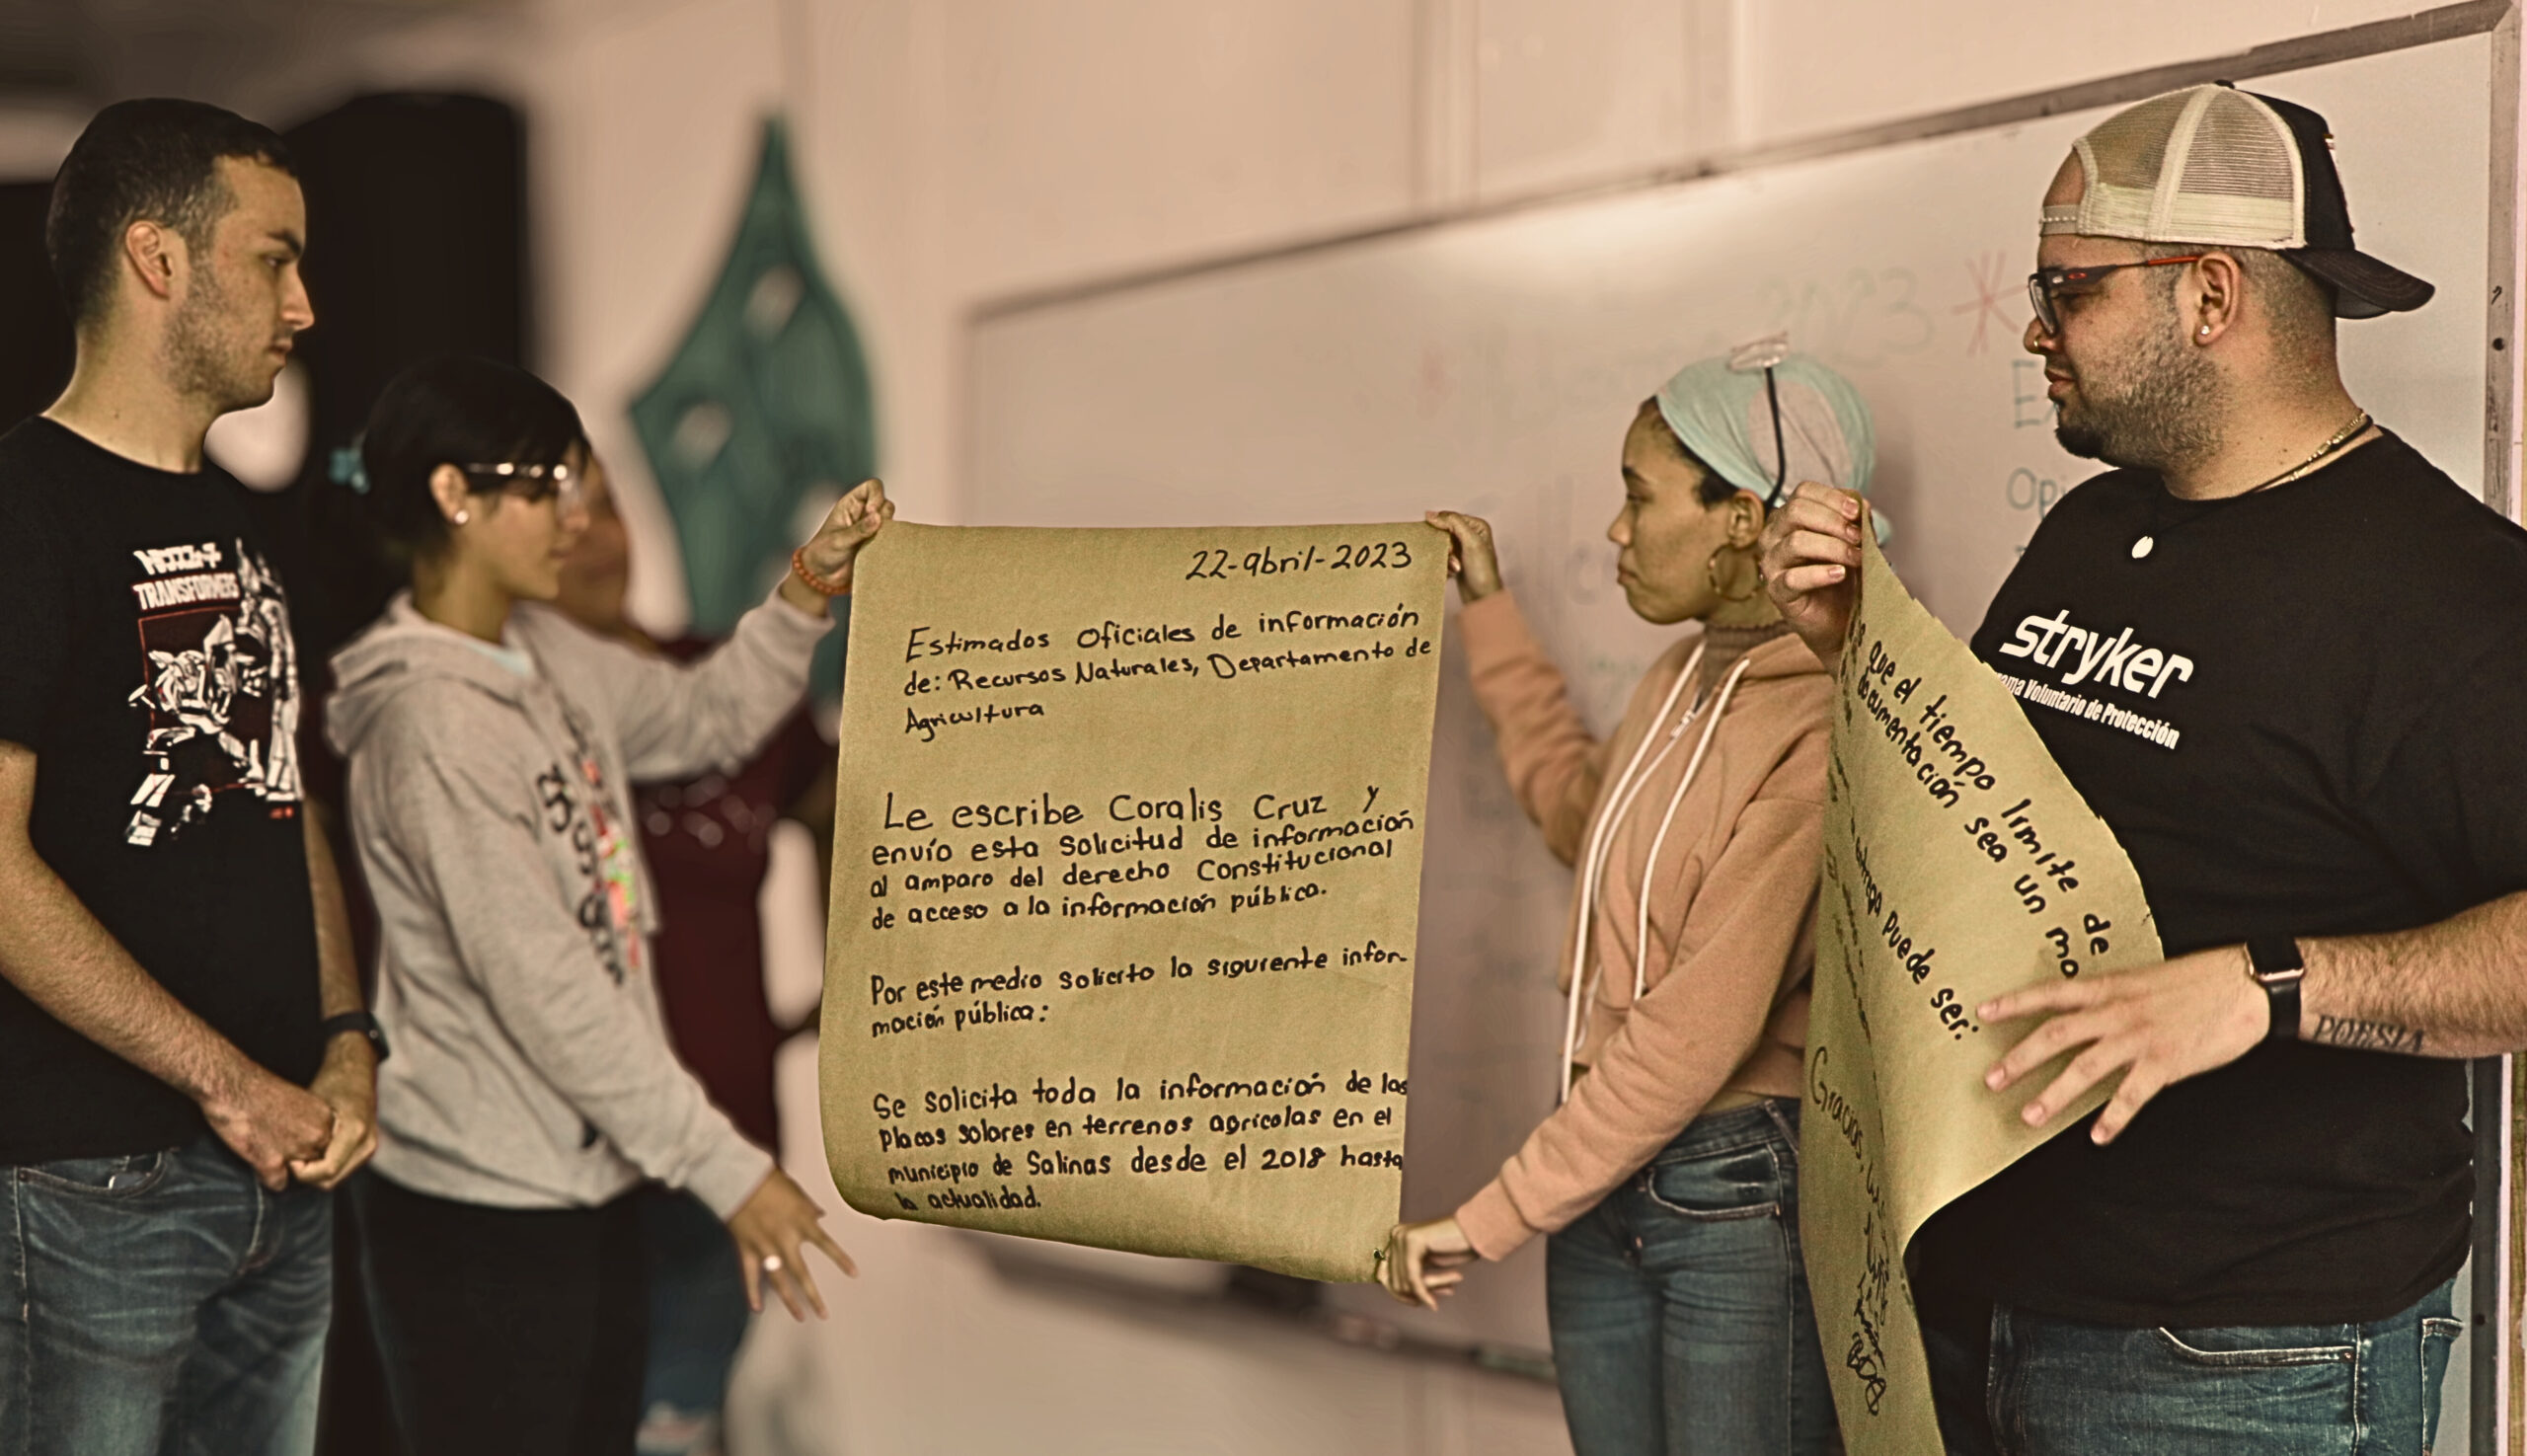 22-abril-2023
Estimados Oficiales de información
de: Recursos Naturales, Departamento de
Agricultura
Le escribe Coralis Cruz y
envío esta Solicitud de información
al amparo del derecho Constitucional
de acceso a la información pública.
Por este medio solicito la siguiente infor-
mación pública:
Se solicita toda la información de las
placas solares en terrenos agrícolas en el
municipio de Salinas desde el 2018 hasta
la actualidad.
TRANSFORMERS
2023
stryker
Voluntario de Protección
que el tiempo límite de
documentación sea un mo
puede ser:
Gracias,
POESIA